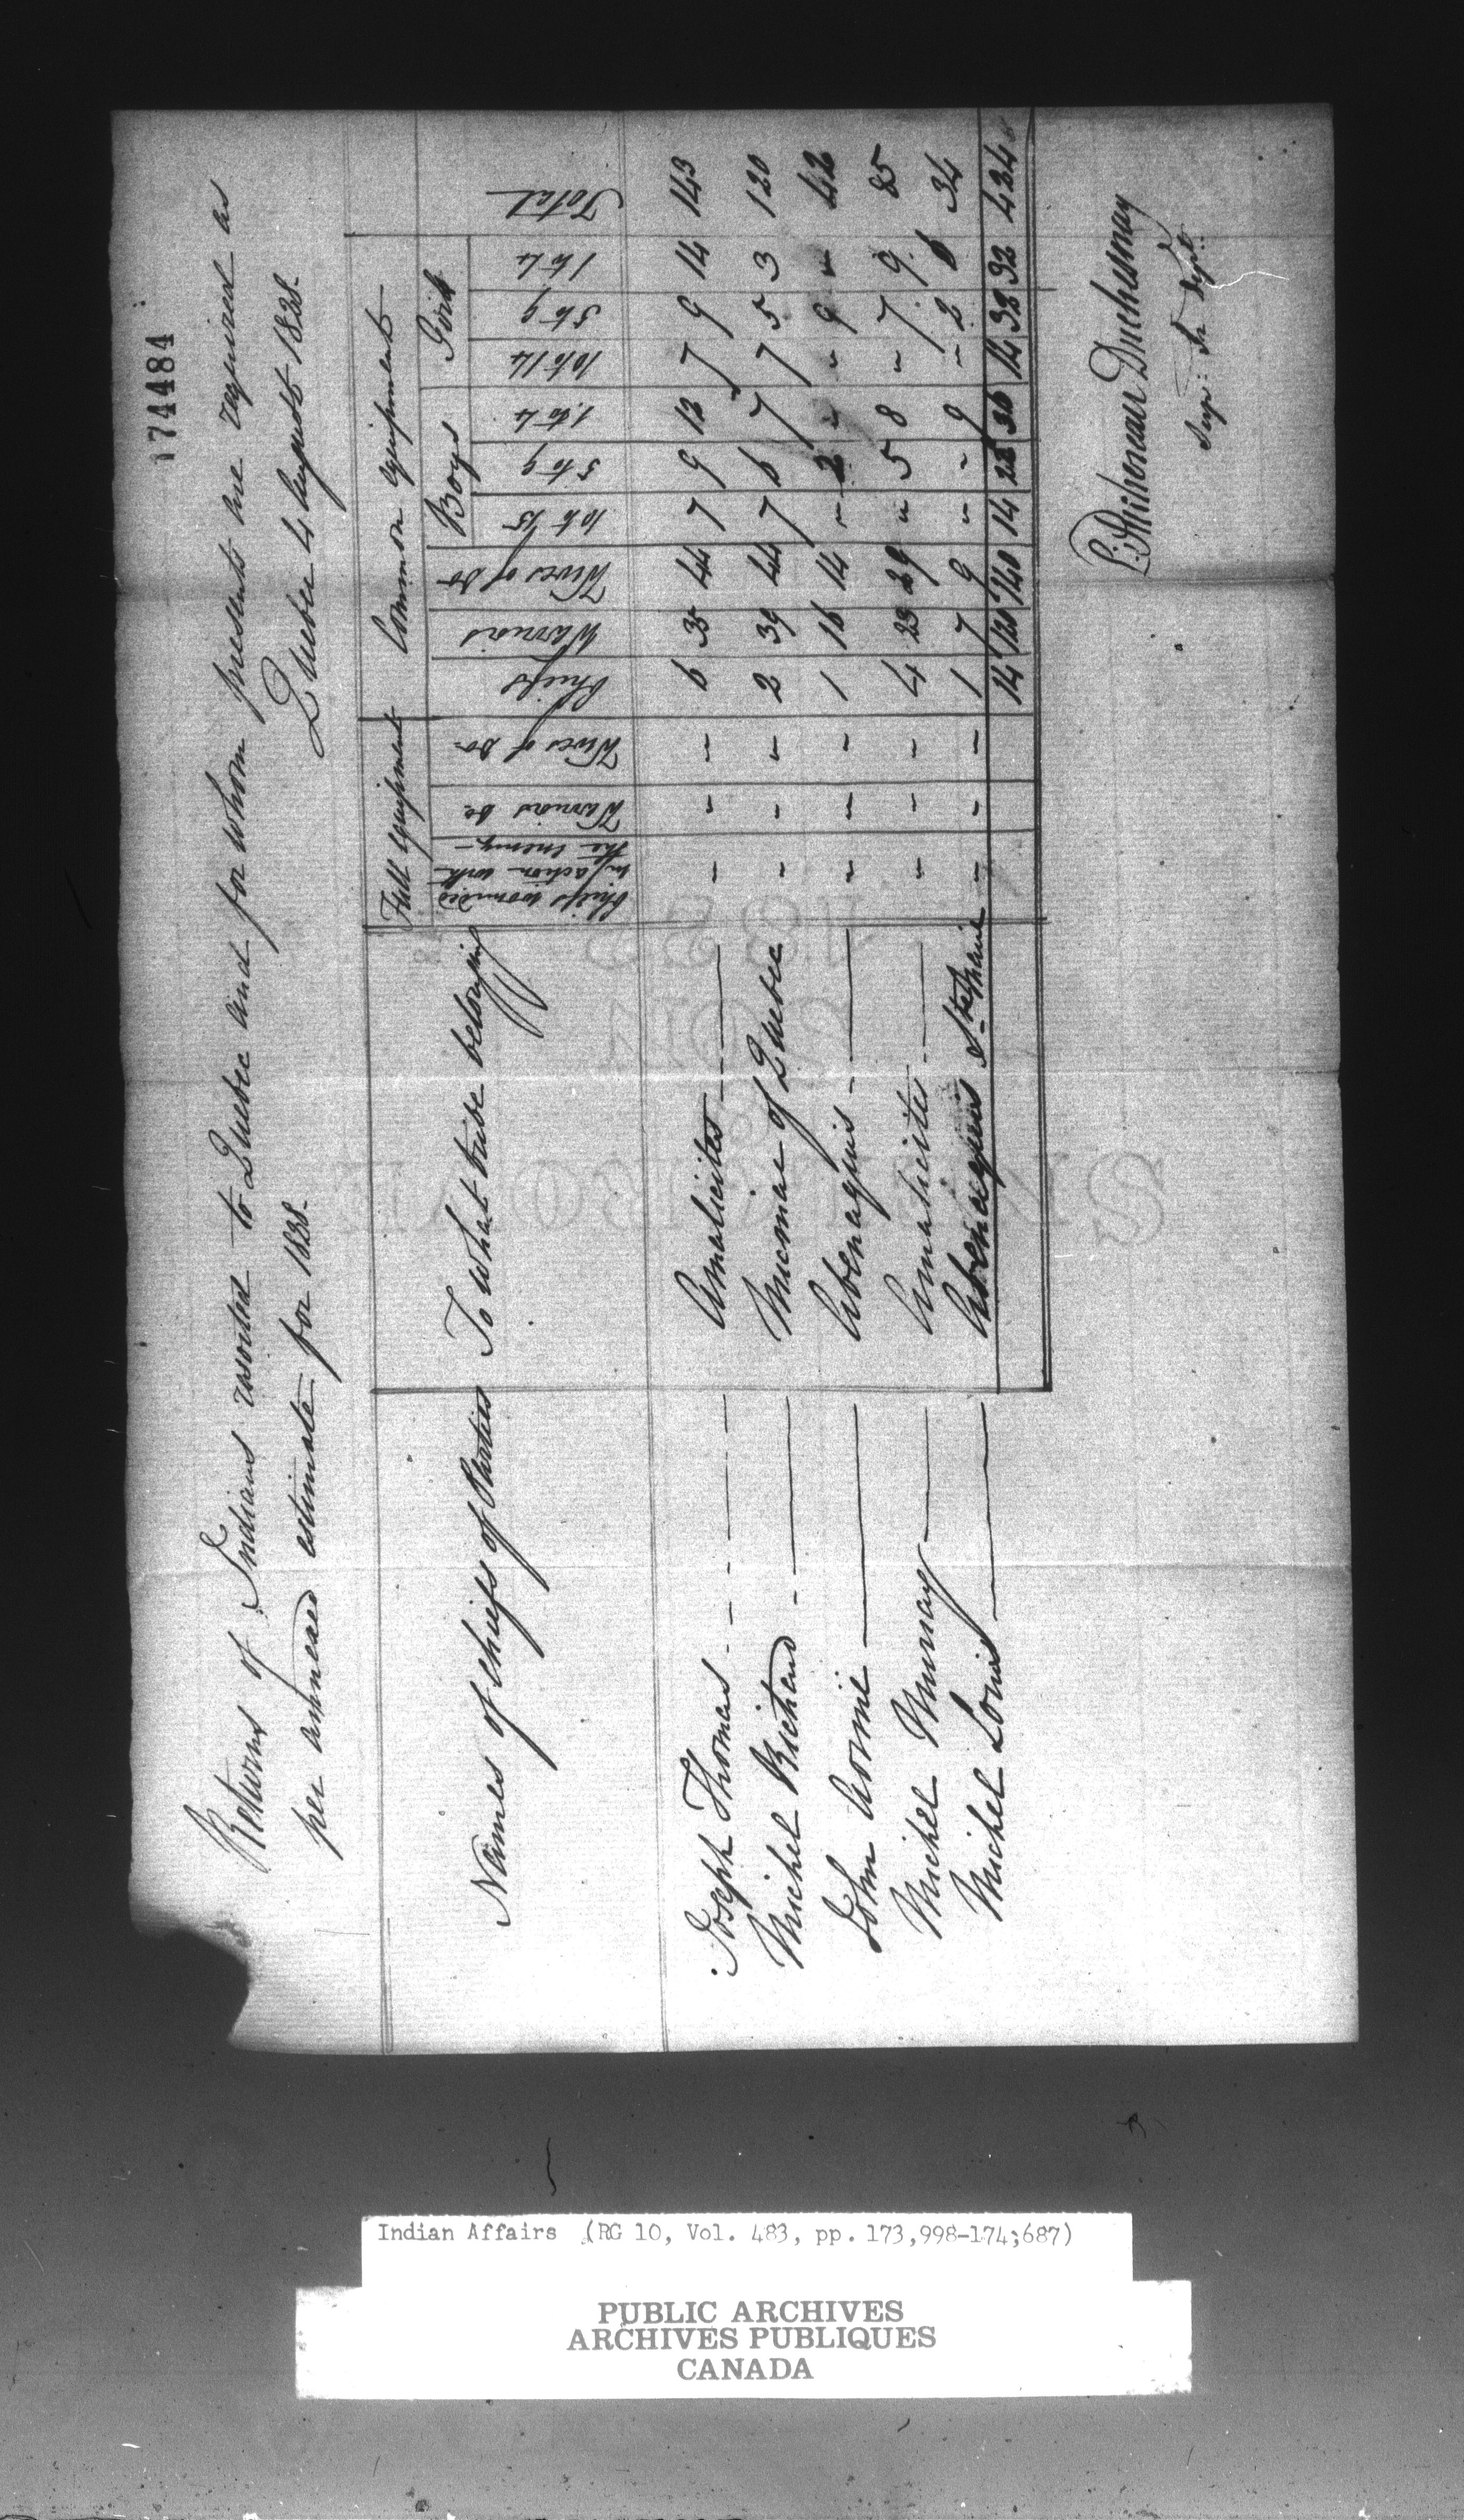 174484
Returns of Indians resorted to Quebec and for whom presents are required as
per annexed estimate for 1838.
Quebec 4 August 1838.
Names of Chiefs of Parties To what tribe belonging Full equipment Common equipment Total
Boys Girls
Chiefs wounded in action with the enemy Warriors do Wives of do Chiefs Warriors Wives of do 10 to 15 5 to 9 1 to 4 10 to 14 5 to 9 1 to 4
Joseph Thomas Amalicites - - - 6 35 44 7 9 12 7 9 14 143
Michel Richard Micmac of Quebec - - - 2 39 44 7 6 7 7 5 3 120
John Abenaquis - - - 1 16 14 - 2 - - 9 - 42
Michel Murray Amalicites - - - 4 23 29 - 5 8 - 7 9 85
Michel Louis Abenaquis Stephanie - - - 1 7 9 - - 9 - 2 6 34
14 120 140 14 22 36 14 32 32 424
L. Juchereau Duchesnay
Sup: In Dept:
SMITH
&
SON
1835
Indian Affairs (RG 10, Vol. 483, pp. 173,998-174;687)
PUBLIC ARCHIVES
ARCHIVES PUBLIQUES
CANADA